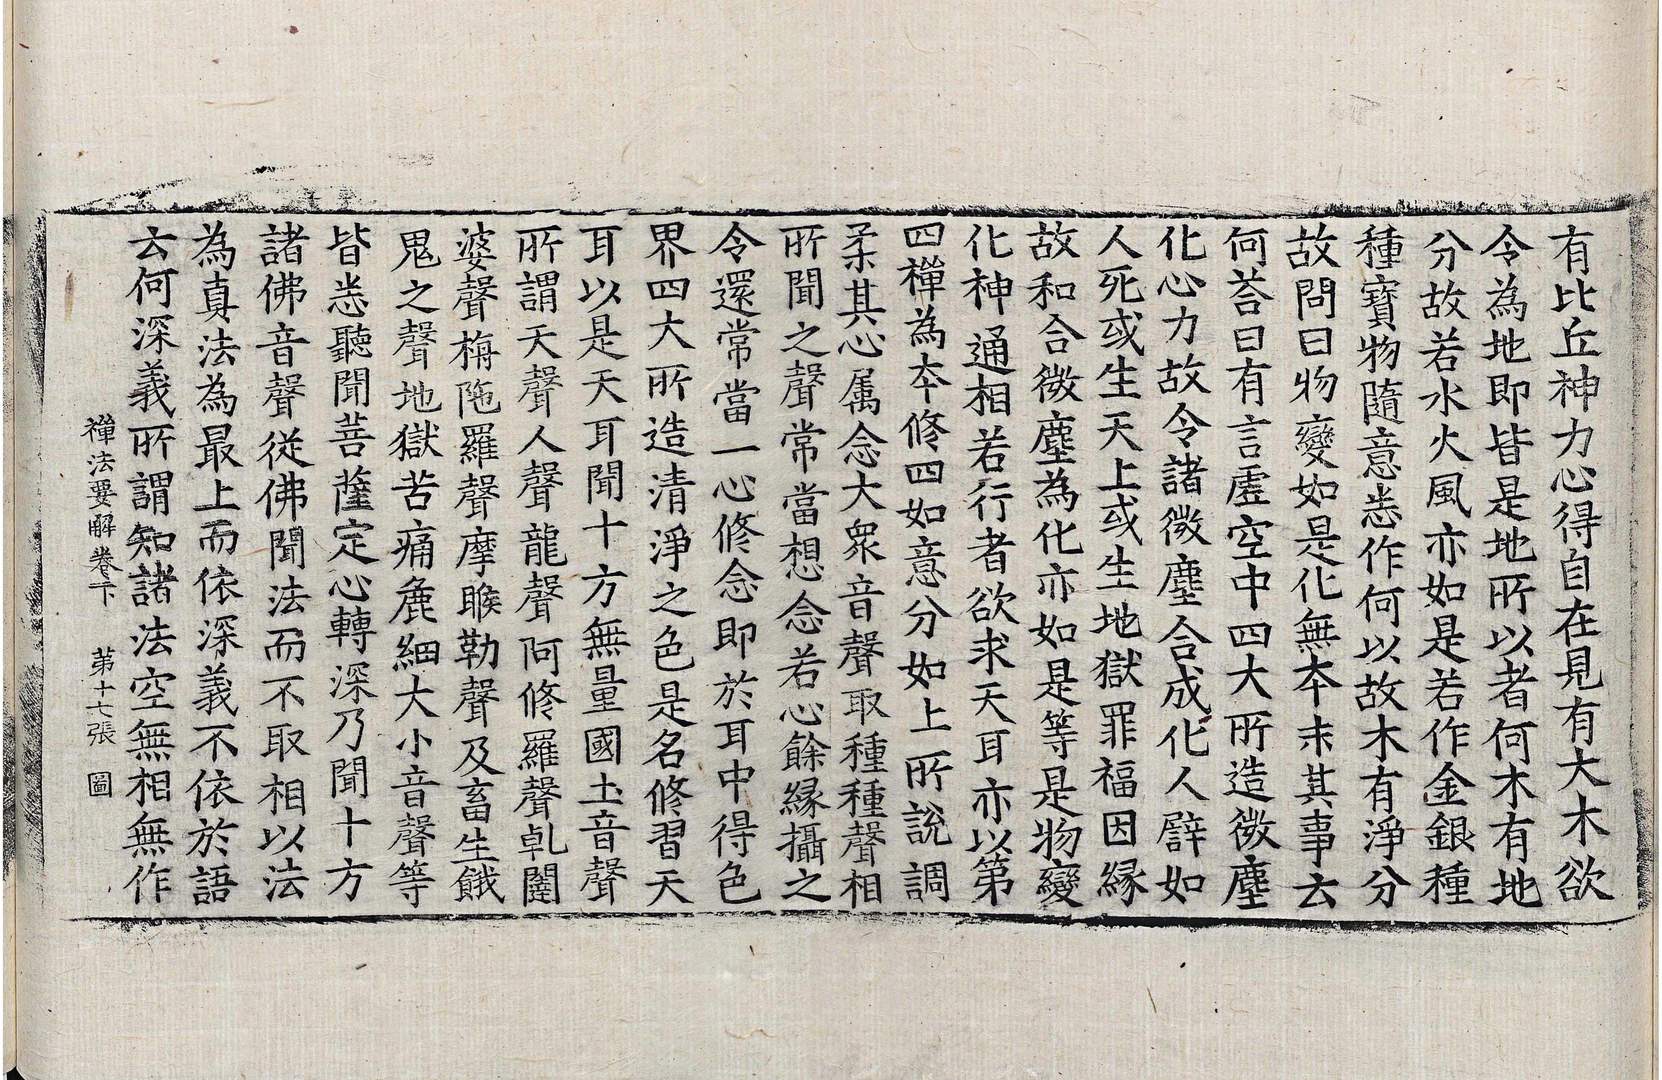 有比丘神力心得自在見有大木欲
令為地即皆是地所以者何木有地
分故若水火風亦如是若作金銀種
種寶物隨意悉作何以故木有淨分
故問曰物變如是化無本末其事云
何荅曰有言虛空中四大所造微塵
化心力故令諸微塵合成化人譬如
人死或生天上或生地獄罪福因緣
故和合微塵為化亦如是等是物變
化神通相若行者欲求天耳亦以第
四禪為本修四如意分如上所說調
柔其心属念大衆音聲取種種聲相
所聞之聲常當想念若心餘緣攝之
令還常當一心修念即於耳中得色
界四大所造清淨之色是名修習天
耳以是天耳聞十方無量國土音聲
所謂天聲人聲龍聲阿修羅聲乹闥
婆聲栴陁羅聲摩睺勒聲及畜生餓
鬼之聲地獄苦痛麁細大小音聲等
皆悉聽聞菩薩定心轉深乃聞十方
諸佛音聲從佛聞法而不取相以法
為真法為最上而依深義不依於語
云何深義所謂知諸法空無相無作
禪法要解卷下 第十七張 圖